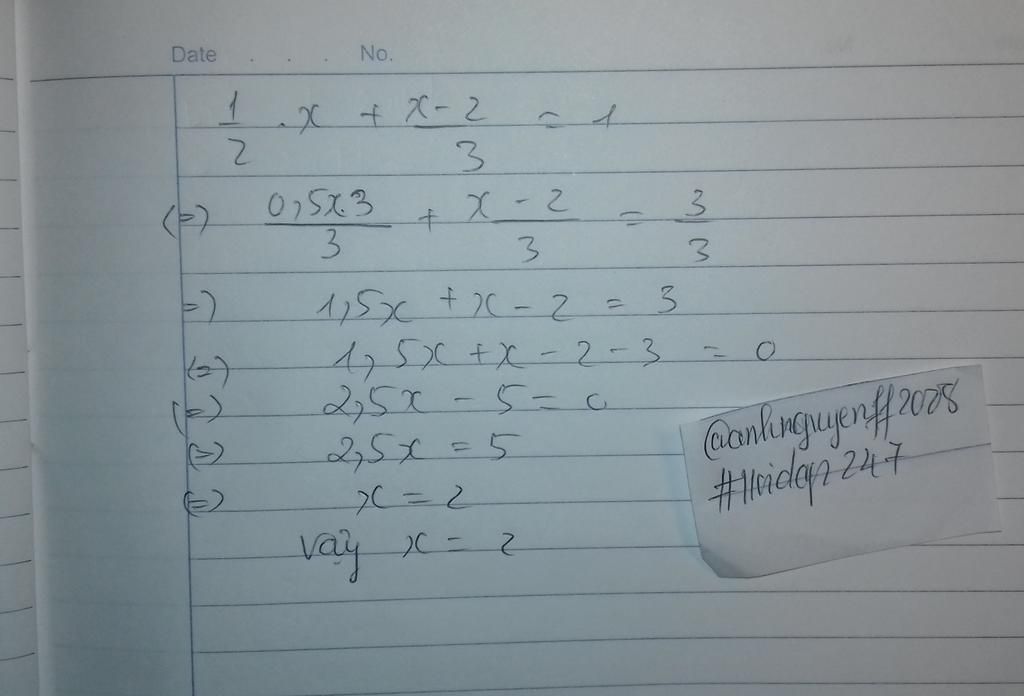 Date . . . No.
1/2 . x + (x - 2)/3 = 1
(=) 0,5x.3/3 + (x - 2)/3 = 3/3
=) 1,5x + x - 2 = 3
(=) 1,5x + x - 2 - 3 = 0
(=) 2,5x - 5 = 0
(=) 2,5x = 5
(=) x = 2
vậy x = 2
@anhnguyenff2008
#Hoidap247